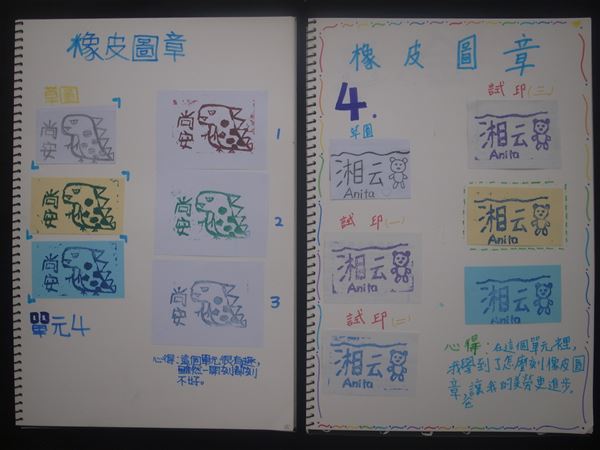 橡皮圖章
草圖
1
2
3
單元4
心得:這個單元,很有趣,
雖然一開刻都刻
不好。
橡皮圖章
4.
草圖
湘云
Anita
試印(一)
湘云
Anita
試印(二)
湘云
Anita
試印(三)
湘云
Anita
湘云
Anita
湘云
Anita
心得:在這個單元裡,
我學到了怎麼刻橡皮圖
章,讓我的美勞更進步。